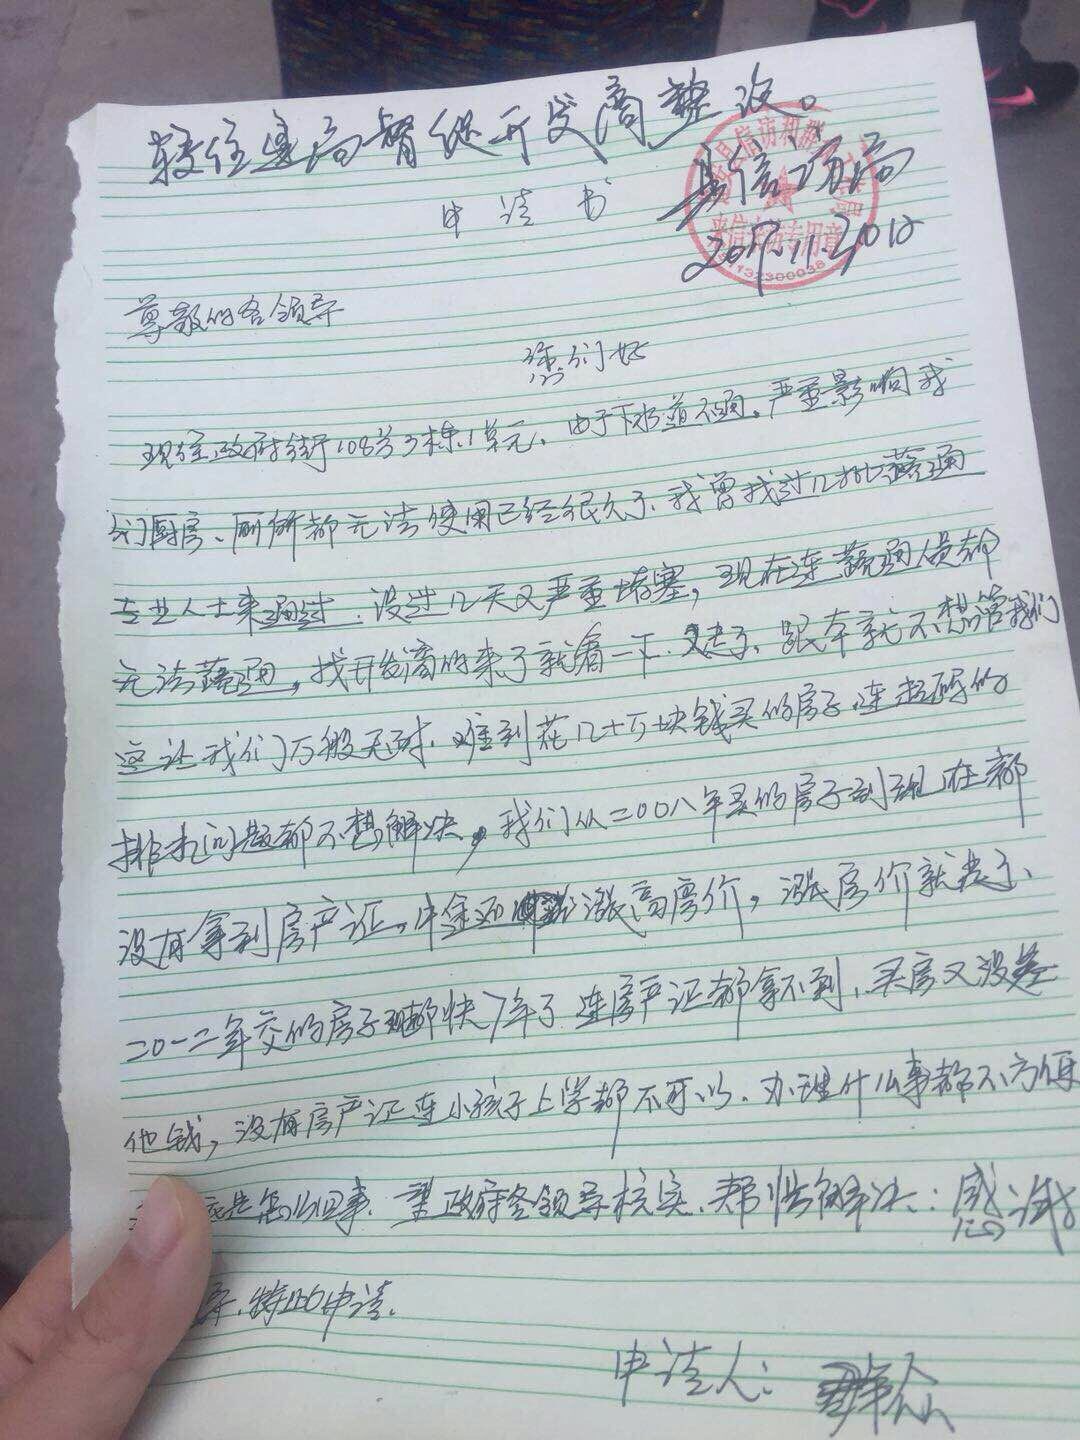 转住建局督促开发商整改。
申请书
县信访局
2017.11.2012
尊敬的各领导
您们好
现住政府街108号3栋.1单元、由于下水道不通。严重影响我
们厨房、厕所都无法使用已经很久了、我曾找过几批蔬通
专业人士来通过.没过几天又严重堵塞，现在连蔬通人员都
无法蔬通，找开发商的来了就看一下.又走了、跟本就不想管我们
这让我们万般无耐.难到花几十万块钱买的房子.连起码的
排水问题都不想解决，我们从二00八年买的房子到现在都
没有拿到房产证。中途还涨高房价，涨房价就是了、
二0一二年交的房子都快7年了 连房产证都拿不到、买房又没差
他钱，没有房产证连小孩子上学都不可以.办理什么事都不方便
底是怎么回事.望政府各领导核实、帮忙解决：感谢
导.特此申请.
申请人：群众